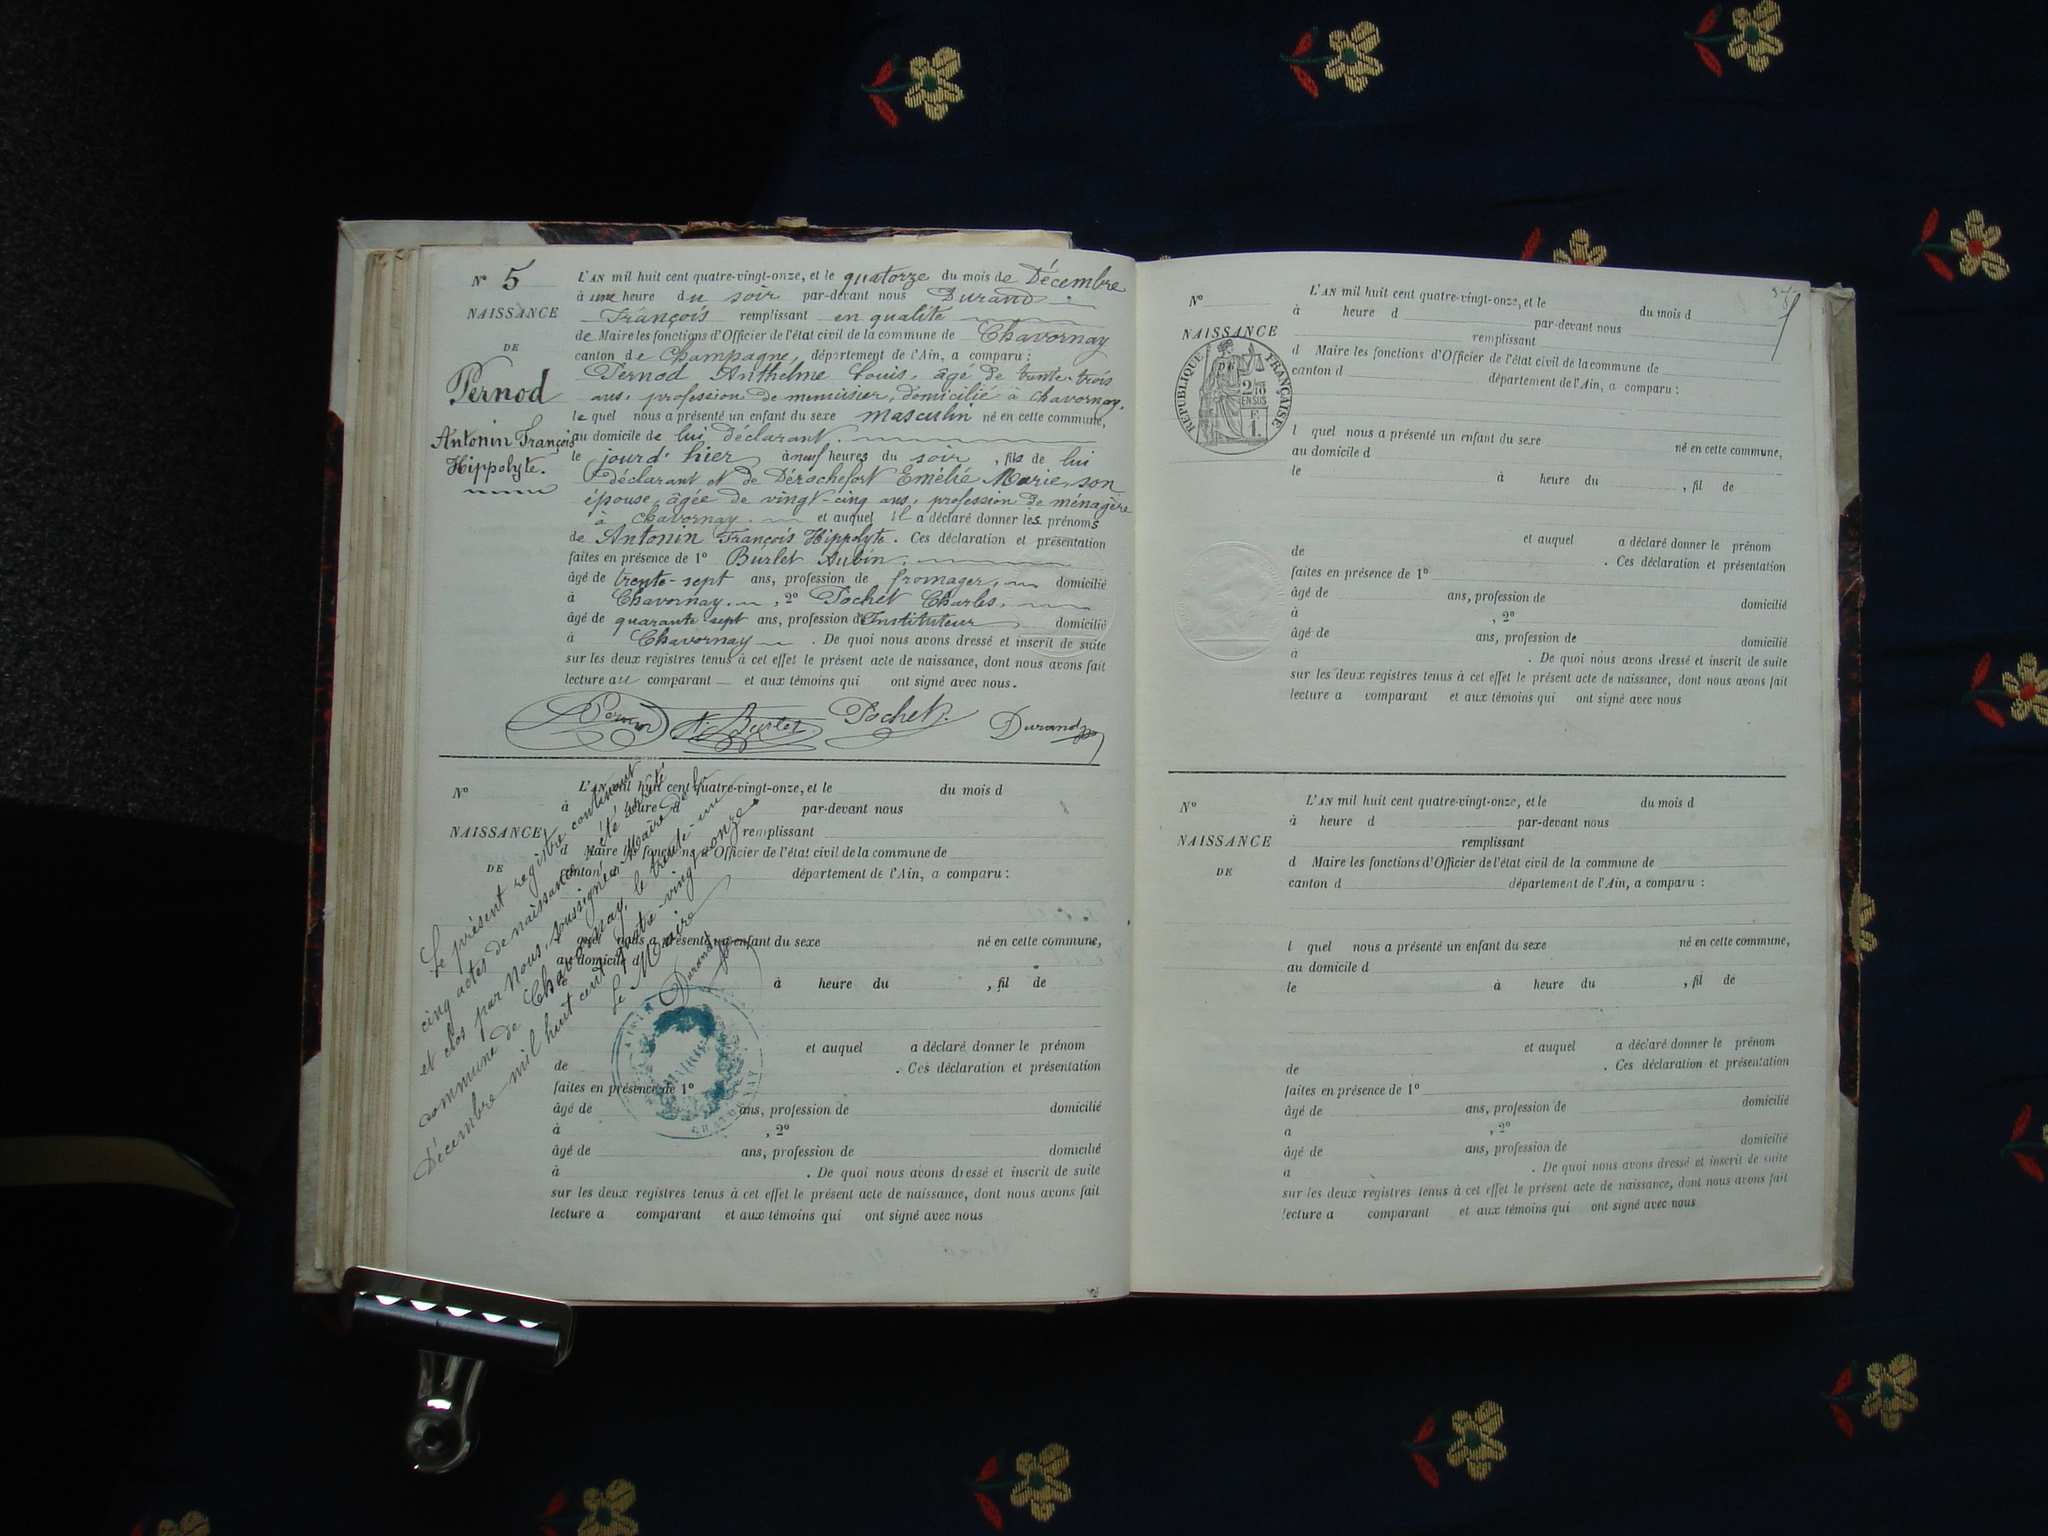 N° 5
NAISSANCE
DE
Pernod
Antonin François
Hippolyte.
L'AN mil huit cent quatre-vingt-onze, et le quatorze du mois de Décembre
à une heure du soir par-devant nous Durand
François remplissant en qualité
de Maire les fonctions d'Officier de l'état civil de la commune de Chavornay
canton de Champagne, département de l'Ain, a comparu :
Pernod Anthelme Louis, âgé de trente-trois
ans, profession de menuisier, domicilié à Chavornay,
lequel nous a présenté un enfant du sexe masculin né en cette commune,
au domicile de lui déclarant.
le jourd'hier à neuf heures du soir, fils de lui
déclarant et de Dérochefort Emélie Marie, son
épouse, âgée de vingt-cinq ans, profession de ménagère
à Chavornay. et auquel il a déclaré donner les prénoms
de Antonin François Hippolyte. Ces déclaration et présentation
faites en présence de 1° Burlet Aubin,
âgé de trente-sept ans, profession de fromager, domicilié
à Chavornay, 2° Pochet Charles,
âgé de quarante-sept ans, profession d'Instituteur domicilié
à Chavornay. De quoi nous avons dressé et inscrit de suite
sur les deux registres tenus à cet effet le présent acte de naissance, dont nous avons fait
lecture au comparant et aux témoins qui ont signé avec nous.
Pernod A. Burlet Pochet. Durand
N°
NAISSANCE
DE
L'AN mil huit cent quatre-vingt-onze, et le du mois d
à heure d par-devant nous
remplissant
d Maire les fonctions d'Officier de l'état civil de la commune de
canton d département de l'Ain, a comparu :
l quel nous a présenté un enfant du sexe né en cette commune,
au domicile d
à heure du , fil de
et auquel a déclaré donner le prénom
de . Ces déclaration et présentation
faites en présence de 1°
âgé de ans, profession de domicilié
à , 2°
âgé de ans, profession de domicilié
à . De quoi nous avons dressé et inscrit de suite
sur les deux registres tenus à cet effet le présent acte de naissance, dont nous avons fait
lecture a comparant et aux témoins qui ont signé avec nous
Le présent registre contenant
cinq actes de naissance a été arrêté
et clos par Nous, soussigné Maire de la
commune de Chavornay, le trente-un
Décembre mil huit cent quatre-vingt-onze.
Le Maire
Durand
MAIRIE
CHAVORNAY
N°
NAISSANCE
RÉPUBLIQUE FRANÇAISE
2/10
EN SUS
L'AN mil huit cent quatre-vingt-onze, et le du mois d
à heure d par-devant nous
remplissant
d Maire les fonctions d'Officier de l'état civil de la commune de
canton d département de l'Ain, a comparu :
l quel nous a présenté un enfant du sexe né en cette commune,
au domicile d
le à heure du , fil de
et auquel a déclaré donner le prénom
de . Ces déclaration et présentation
faites en présence de 1°
âgé de ans, profession de domicilié
à , 2°
âgé de ans, profession de domicilié
à . De quoi nous avons dressé et inscrit de suite
sur les deux registres tenus à cet effet le présent acte de naissance, dont nous avons fait
lecture a comparant et aux témoins qui ont signé avec nous
N°
NAISSANCE
DE
L'AN mil huit cent quatre-vingt-onze, et le du mois d
à heure d par-devant nous
remplissant
d Maire les fonctions d'Officier de l'état civil de la commune de
canton d département de l'Ain, a comparu :
l quel nous a présenté un enfant du sexe né en cette commune,
au domicile d
le à heure du , fil de
et auquel a déclaré donner le prénom
de . Ces déclaration et présentation
faites en présence de 1°
âgé de ans, profession de domicilié
à , 2°
âgé de ans, profession de domicilié
à . De quoi nous avons dressé et inscrit de suite
sur les deux registres tenus à cet effet le présent acte de naissance, dont nous avons fait
lecture a comparant et aux témoins qui ont signé avec nous